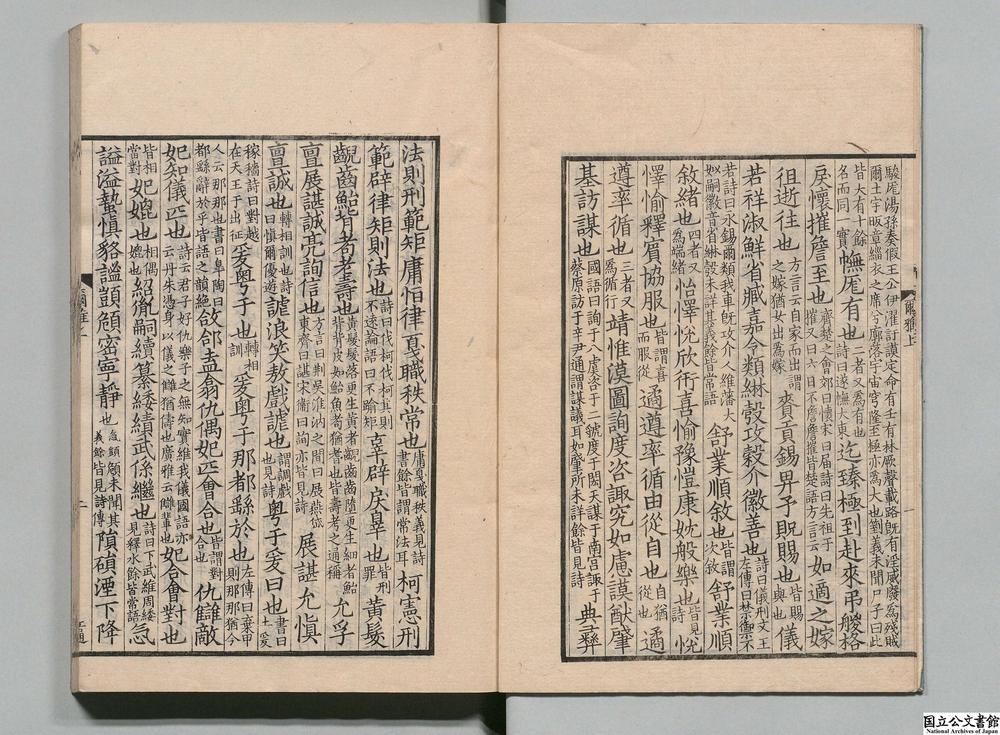 駿厖湯孫奏假王公伊濯訏謨定命有壬有林厥聲載路既有淫威廢為殘賊
爾土宇昄章緇衣之席兮廓落宇宙穹隆至極亦為大也箌義未聞尸子曰此
皆大有十餘名而同一實 幠厖有也 二者又為有也詩曰遂幠大東 迄臻極到赴來弔艐格
戾懷摧詹至也 齊楚之會郊曰懷宋曰屆詩曰先祖于摧又曰六日不詹詹摧皆楚語方言云 如適之嫁
徂逝往也 方言云自家而出謂之嫁猶女出為嫁 賚貢錫畀予貺賜也 皆賜與也 儀
若祥淑鮮省臧嘉令類綝彀攻穀介徽善也 詩曰儀刑文王左傳曰禁禦不
若詩曰永錫爾類我車既攻介人維藩大姒嗣徽音省綝彀未詳其義餘皆常語 舒業順敘也 皆謂次敘 舒業順
敘緒也 四者又為端緒 怡懌悅欣衎喜愉豫愷康妉般樂也 皆見詩 悅
懌愉釋賓協服也 皆謂喜而服從 遹遵率循由從自也 自猶從也 遹
遵率循也 三者又為循行 靖惟漠圖詢度咨諏究如慮謨猷肇
基訪謀也 國語曰詢于八虞咨于二號度于閎夭謀于南宮諏于蔡原訪于辛尹通謂謀議耳如肇所未詳餘皆見詩 典彝
爾雅上
法則刑範矩庸恒律戛職秩常也 庸戛職秩義見詩書餘皆謂常法耳 柯憲刑
範辟律矩則法也 詩曰伐柯伐柯其則不遠論語曰不踰矩 辜辟戾辠也 皆刑罪 黃髮
齯齒鮐背耇老壽也 黃髮髮落更生黃者齯齒齒墮更生細者鮐背背皮如鮐魚耇猶耆也皆壽考之通稱 允孚
亶展諶誠亮詢信也 方言曰荊吳淮汭之間曰展燕岱東齊曰諶宋衞曰詢亦皆見詩 展諶允慎
亶誠也 轉相訓也詩曰慎爾優遊 謔浪笑敖戲謔也 謂調戲也見詩 粵于爰曰也 書曰土爰
稼穡詩曰對越在天王于出征 爰粵于也 轉相訓 爰粵于那都繇於也 左傳曰棄甲則那那猶今
人云那那也書曰皐陶曰都繇辭於乎皆語之韻絕 敆郃盍翕仇偶妃匹會合也 皆謂對合也 仇讎敵
妃知儀匹也 詩云君子好仇樂子之無知實維我儀國語亦云丹朱憑身以儀之讎猶儔也廣雅云讎輩也 妃合會對也
皆相當對 妃媲也 相偶媲也 紹胤嗣續纂緌績武係繼也 詩曰下武維周緌見釋水餘皆常語 忥
謐溢蟄慎貉謐顗頠密寧靜也 忥顗頠未聞其義餘皆見詩傳 隕磒湮下降
国立公文書館
National Archives of Japan